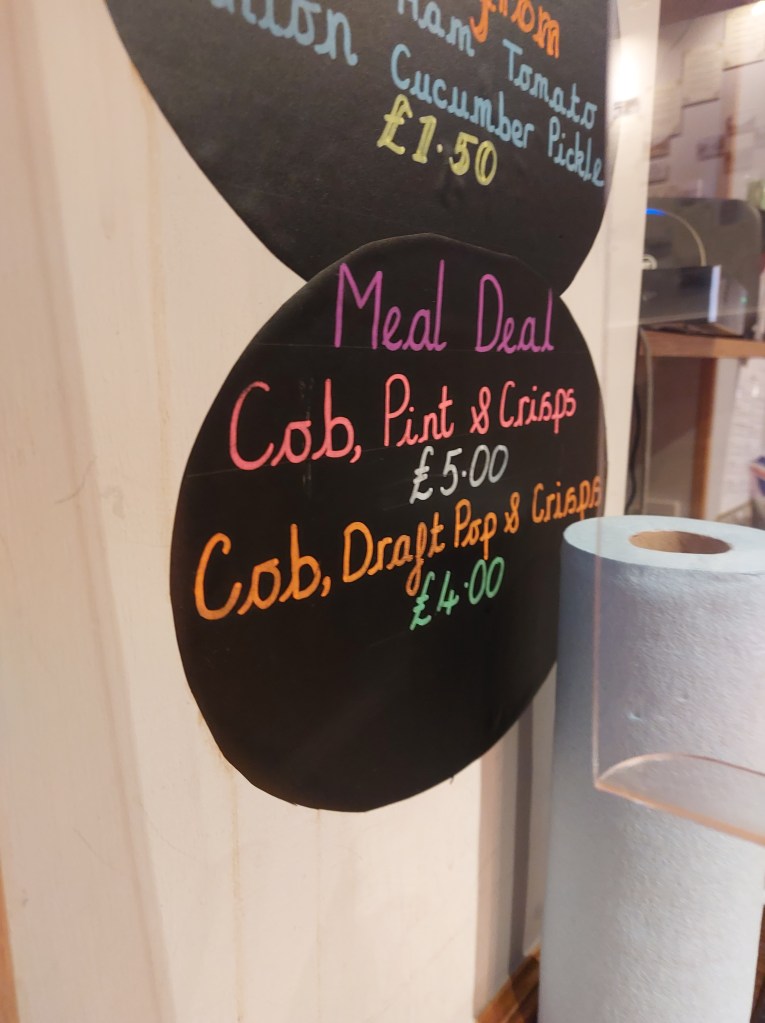 from
Ham Tomato
Cucumber Pickle
£1.50
Meal Deal
Cob, Pint & Crisps
£5.00
Cob, Draft Pop & Crisps
£4.00